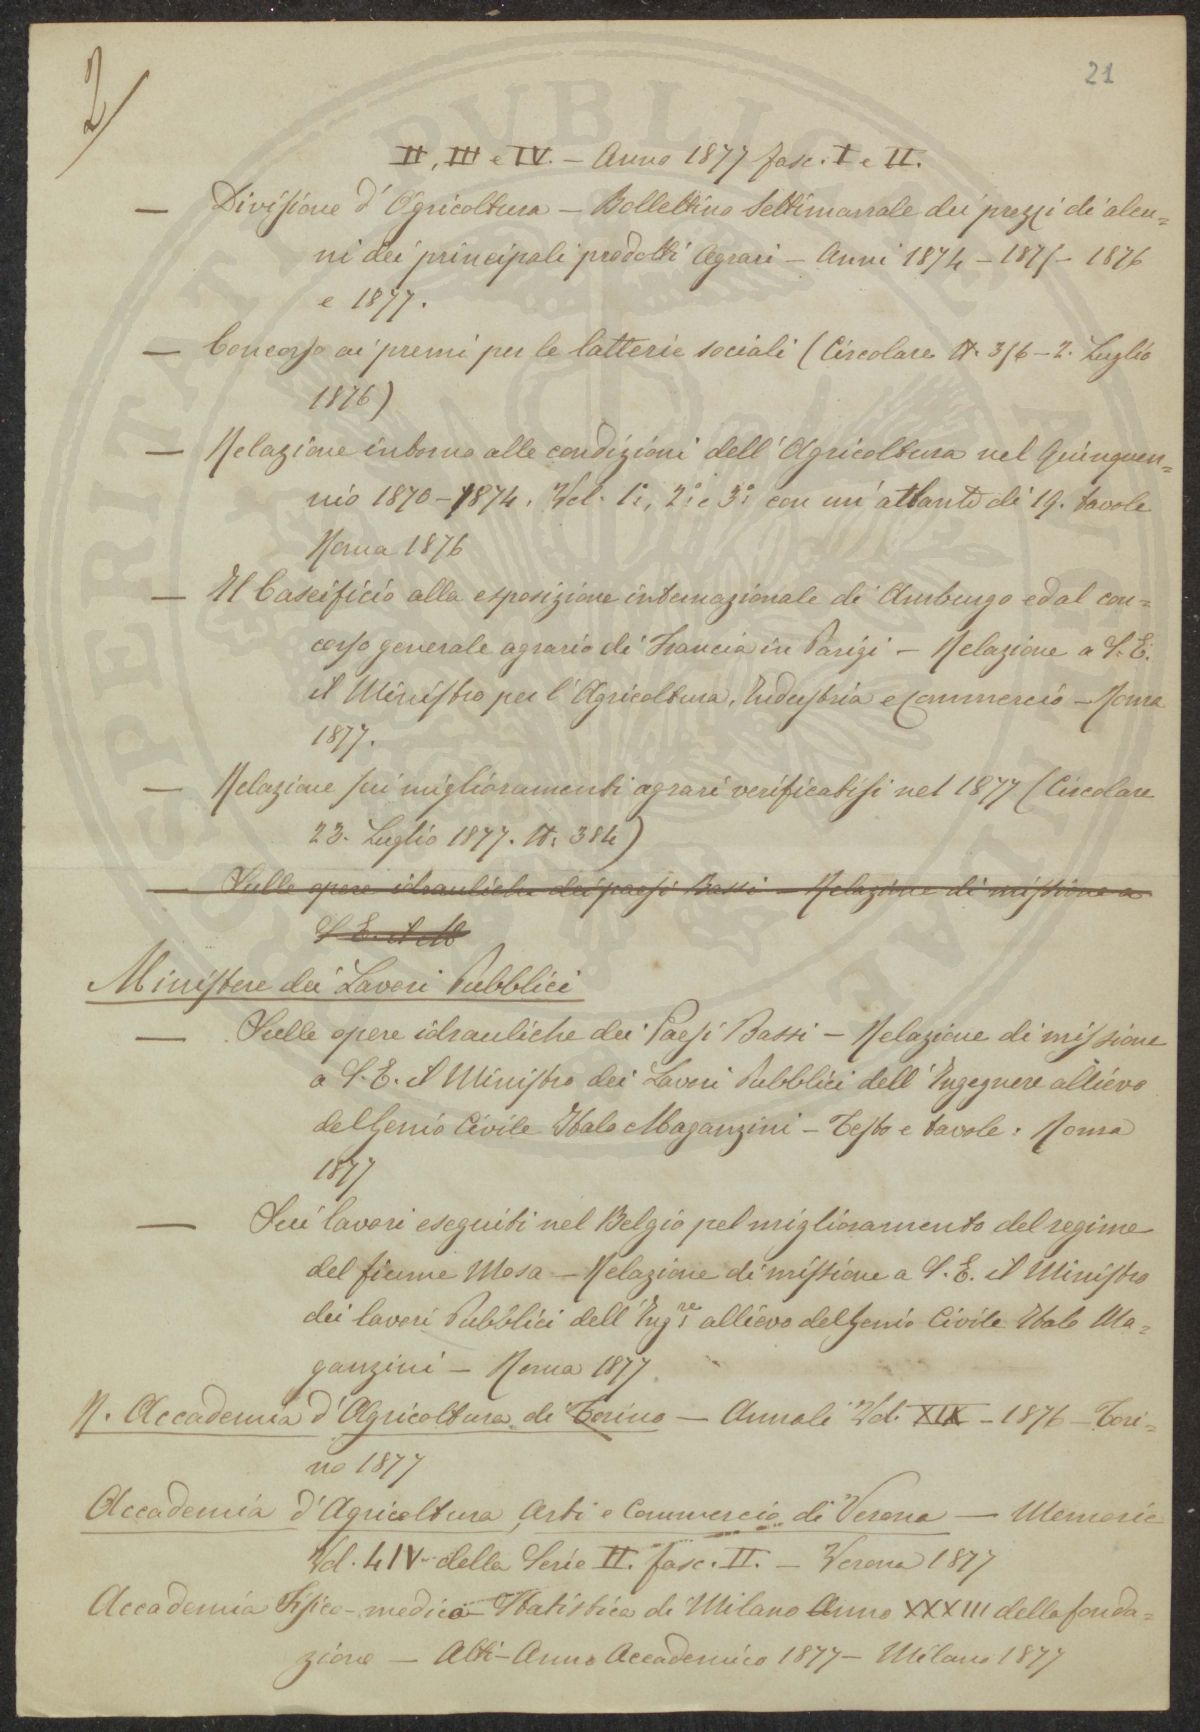 2/
21
II, III e IV. — Anno 1877 fasc. I e II.
— Divisione d'Agricoltura — Bollettino Settimanale dei prezzi di alcu=
ni dei principali prodotti Agrari — Anni 1874 — 1875 — 1876
e 1877.
— Concorso ai premi per le latterie sociali (Circolare N. 356 — 2. Luglio
1876)
— Relazione intorno alle condizioni dell'Agricoltura nel Quinquen=
nio 1870 — 1874. Vol. 1°, 2° e 3° con un'atlante di 19. tavole
Roma 1876
— Il Caseificio alla esposizione internazionale di Amburgo ed al con=
corso generale agrario di Francia in Parigi — Relazione a S. E.
il Ministro per l'Agricoltura, Industria e Commercio — Roma
1877.
— Relazione sui miglioramenti agrari verificatisi nel 1877 (Circolare
23. Luglio 1877. N. 384)
— Sulle opere idrauliche dei paesi Bassi — Relazione di missione a
S. E. il M
Ministere dei Lavori Pubblici
— Sulle opere idrauliche dei Paesi Bassi — Relazione di missione
a S. E. il Ministro dei Lavori Pubblici dell'Ingegnere allievo
del Genio Civile Italo Maganzini — Testo e tavole. Roma
1877
— Sui lavori eseguiti nel Belgio pel miglioramento del regime
del fiume Mosa — Relazione di missione a S. E. il Ministro
dei lavori Pubblici dell'Ing.re allievo del Genio Civile Italo Ma=
ganzini — Roma 1877.
R. Accademia d'Agricoltura di Torino — Annali Vol. XIX — 1876 — Tori=
no 1877
Accademia d'Agricoltura, Arti e Commercio di Verona — Memorie
Vol. LIV della Serie II. fasc. II. — Verona 1877
Accademia Fisico-medico-Statistica di Milano Anno XXXIII della fonda=
zione — Atti — Anno Accademico 1877 — Milano 1877
PROSPERITATI PUBLICAE